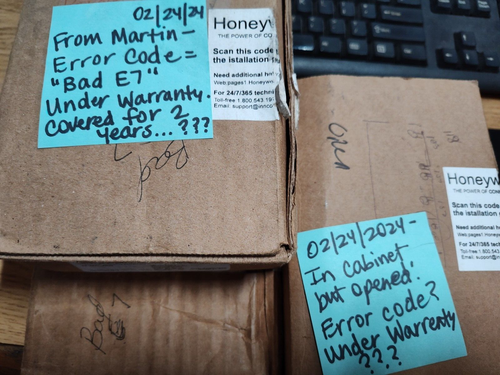 02/24/24
From Martin-
Error Code=
"Bad E7"
Under Warranty.
Covered for 2
years...???
Honeyw
THE POWER OF CON
Scan this code
the istallation
Need additional
Web pages1 Honeywe
For 24/7/365 techni
Toll-free 1.800.543.19
Email: support@
Bad
Bad
E7
Open
Honeyw
THE POWER OF CONN
Scan this code
the istallation
Need additional h
Web pages1 Honeyw
For 24/7/365
Toll-free 1.800.543
Email: support@in
02/24/2024-
In cabinet,
but opened.
Error code?
Under Warrenty
???